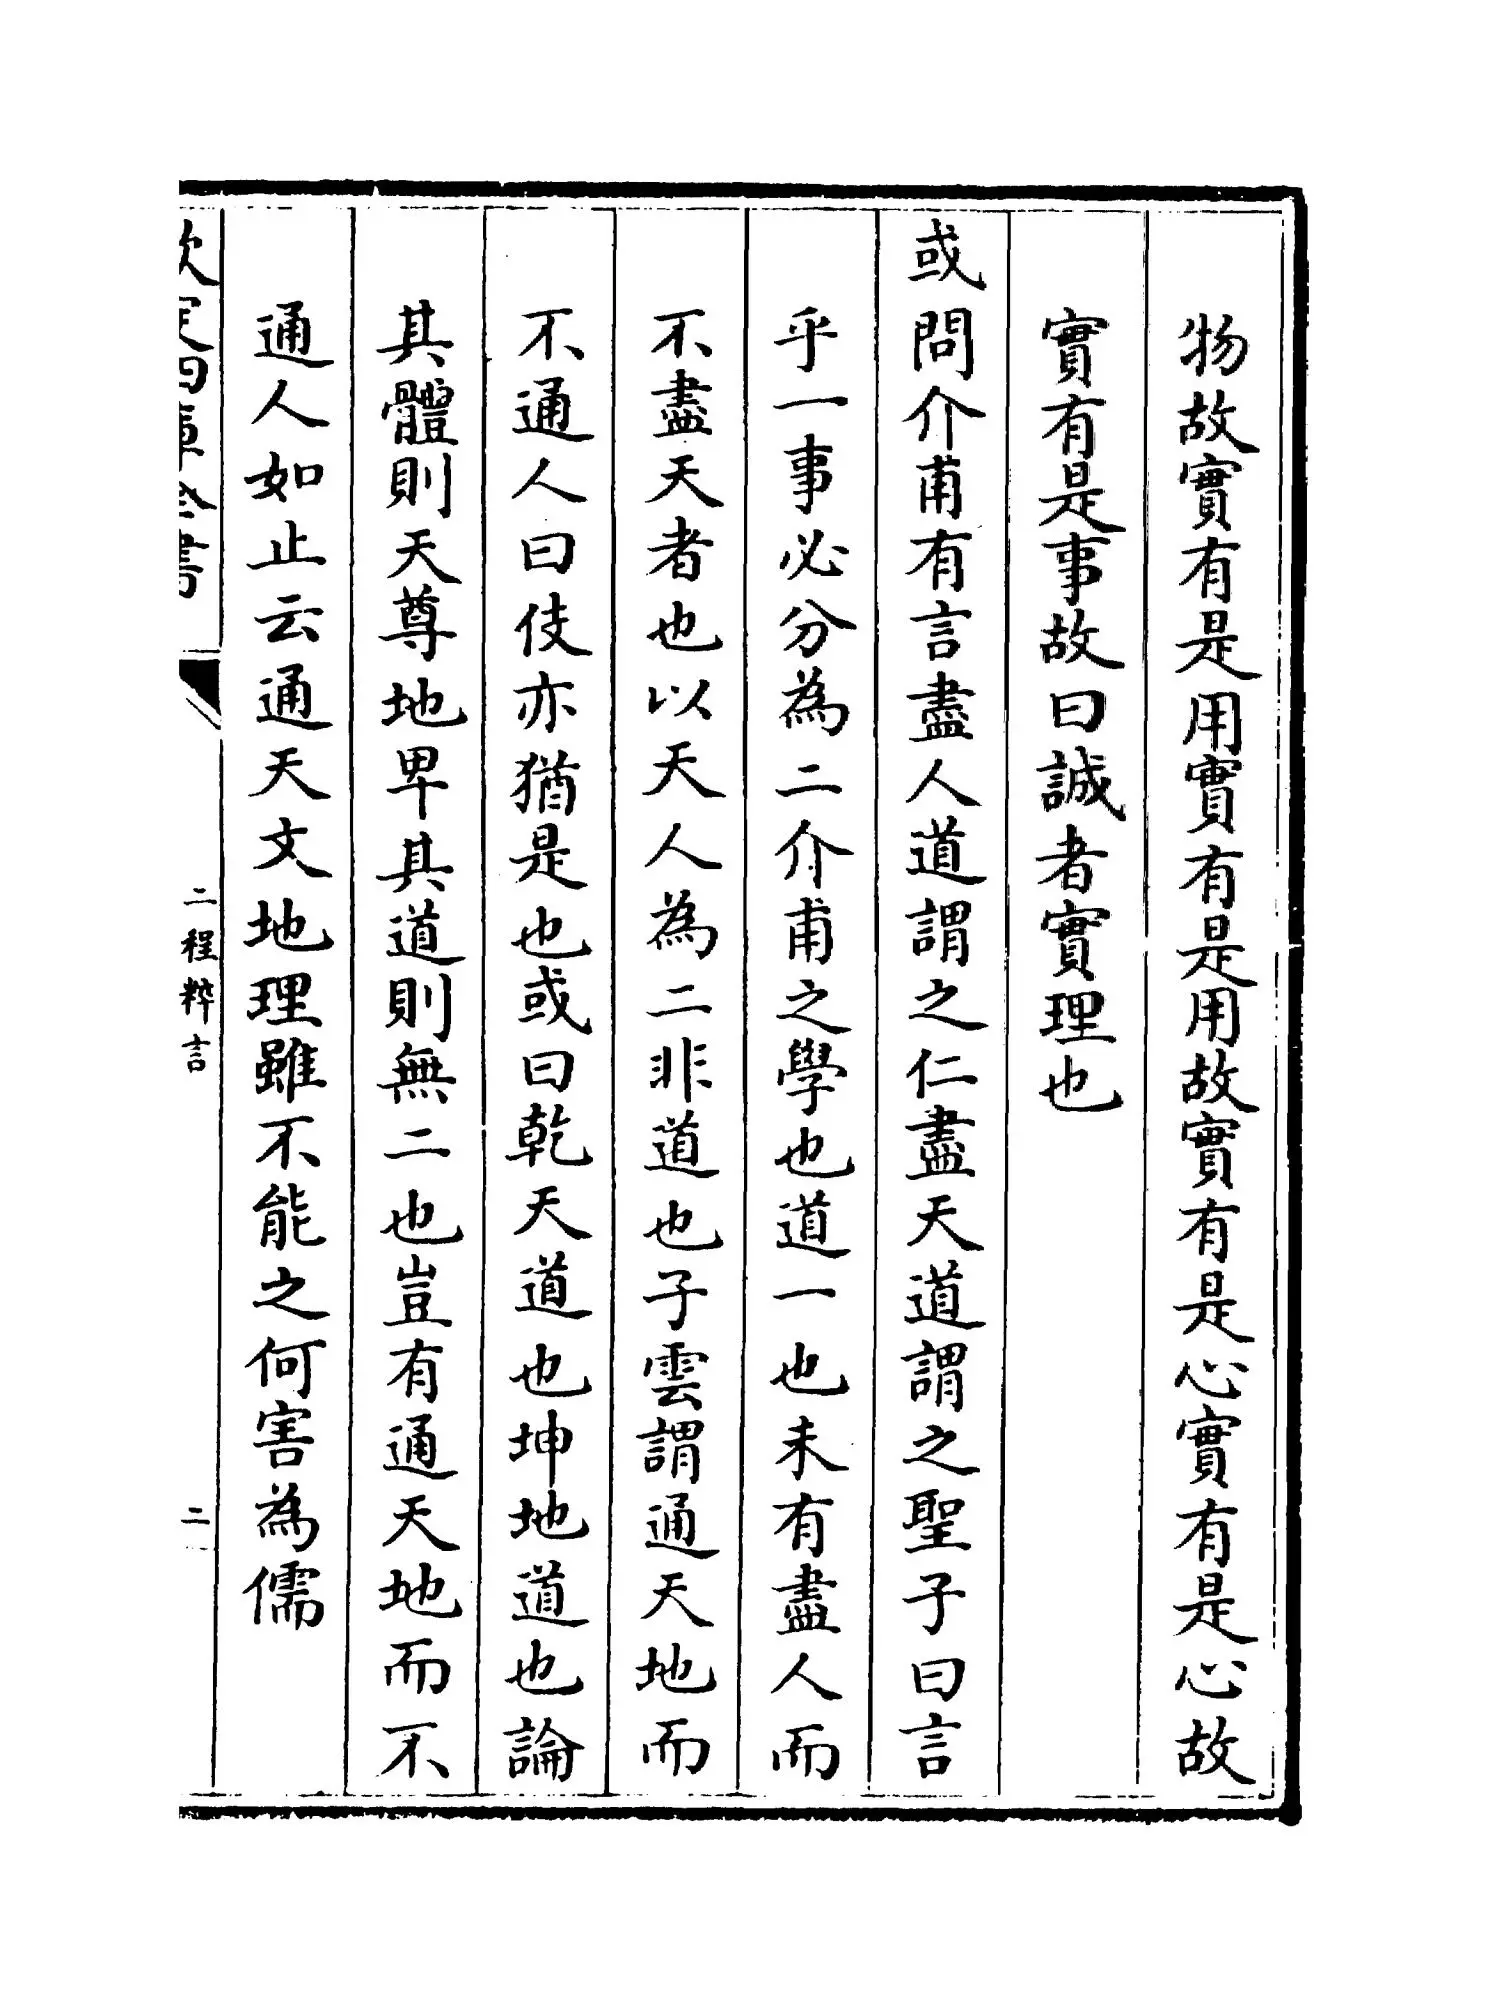 物故實有是用實有是用故實有是心實有是心故
實有是事故曰誠者實理也
或問介甫有言盡人道謂之仁盡天道謂之聖子曰言
乎一事必分為二介甫之學也道一也未有盡人而
不盡天者也以天人為二非道也子雲謂通天地而
不通人曰伎亦猶是也或曰乾天道也坤地道也論
其體則天尊地卑其道則無二也豈有通天地而不
通人如止云通天文地理雖不能之何害為儒
欽定四庫全書
二程粹言
二